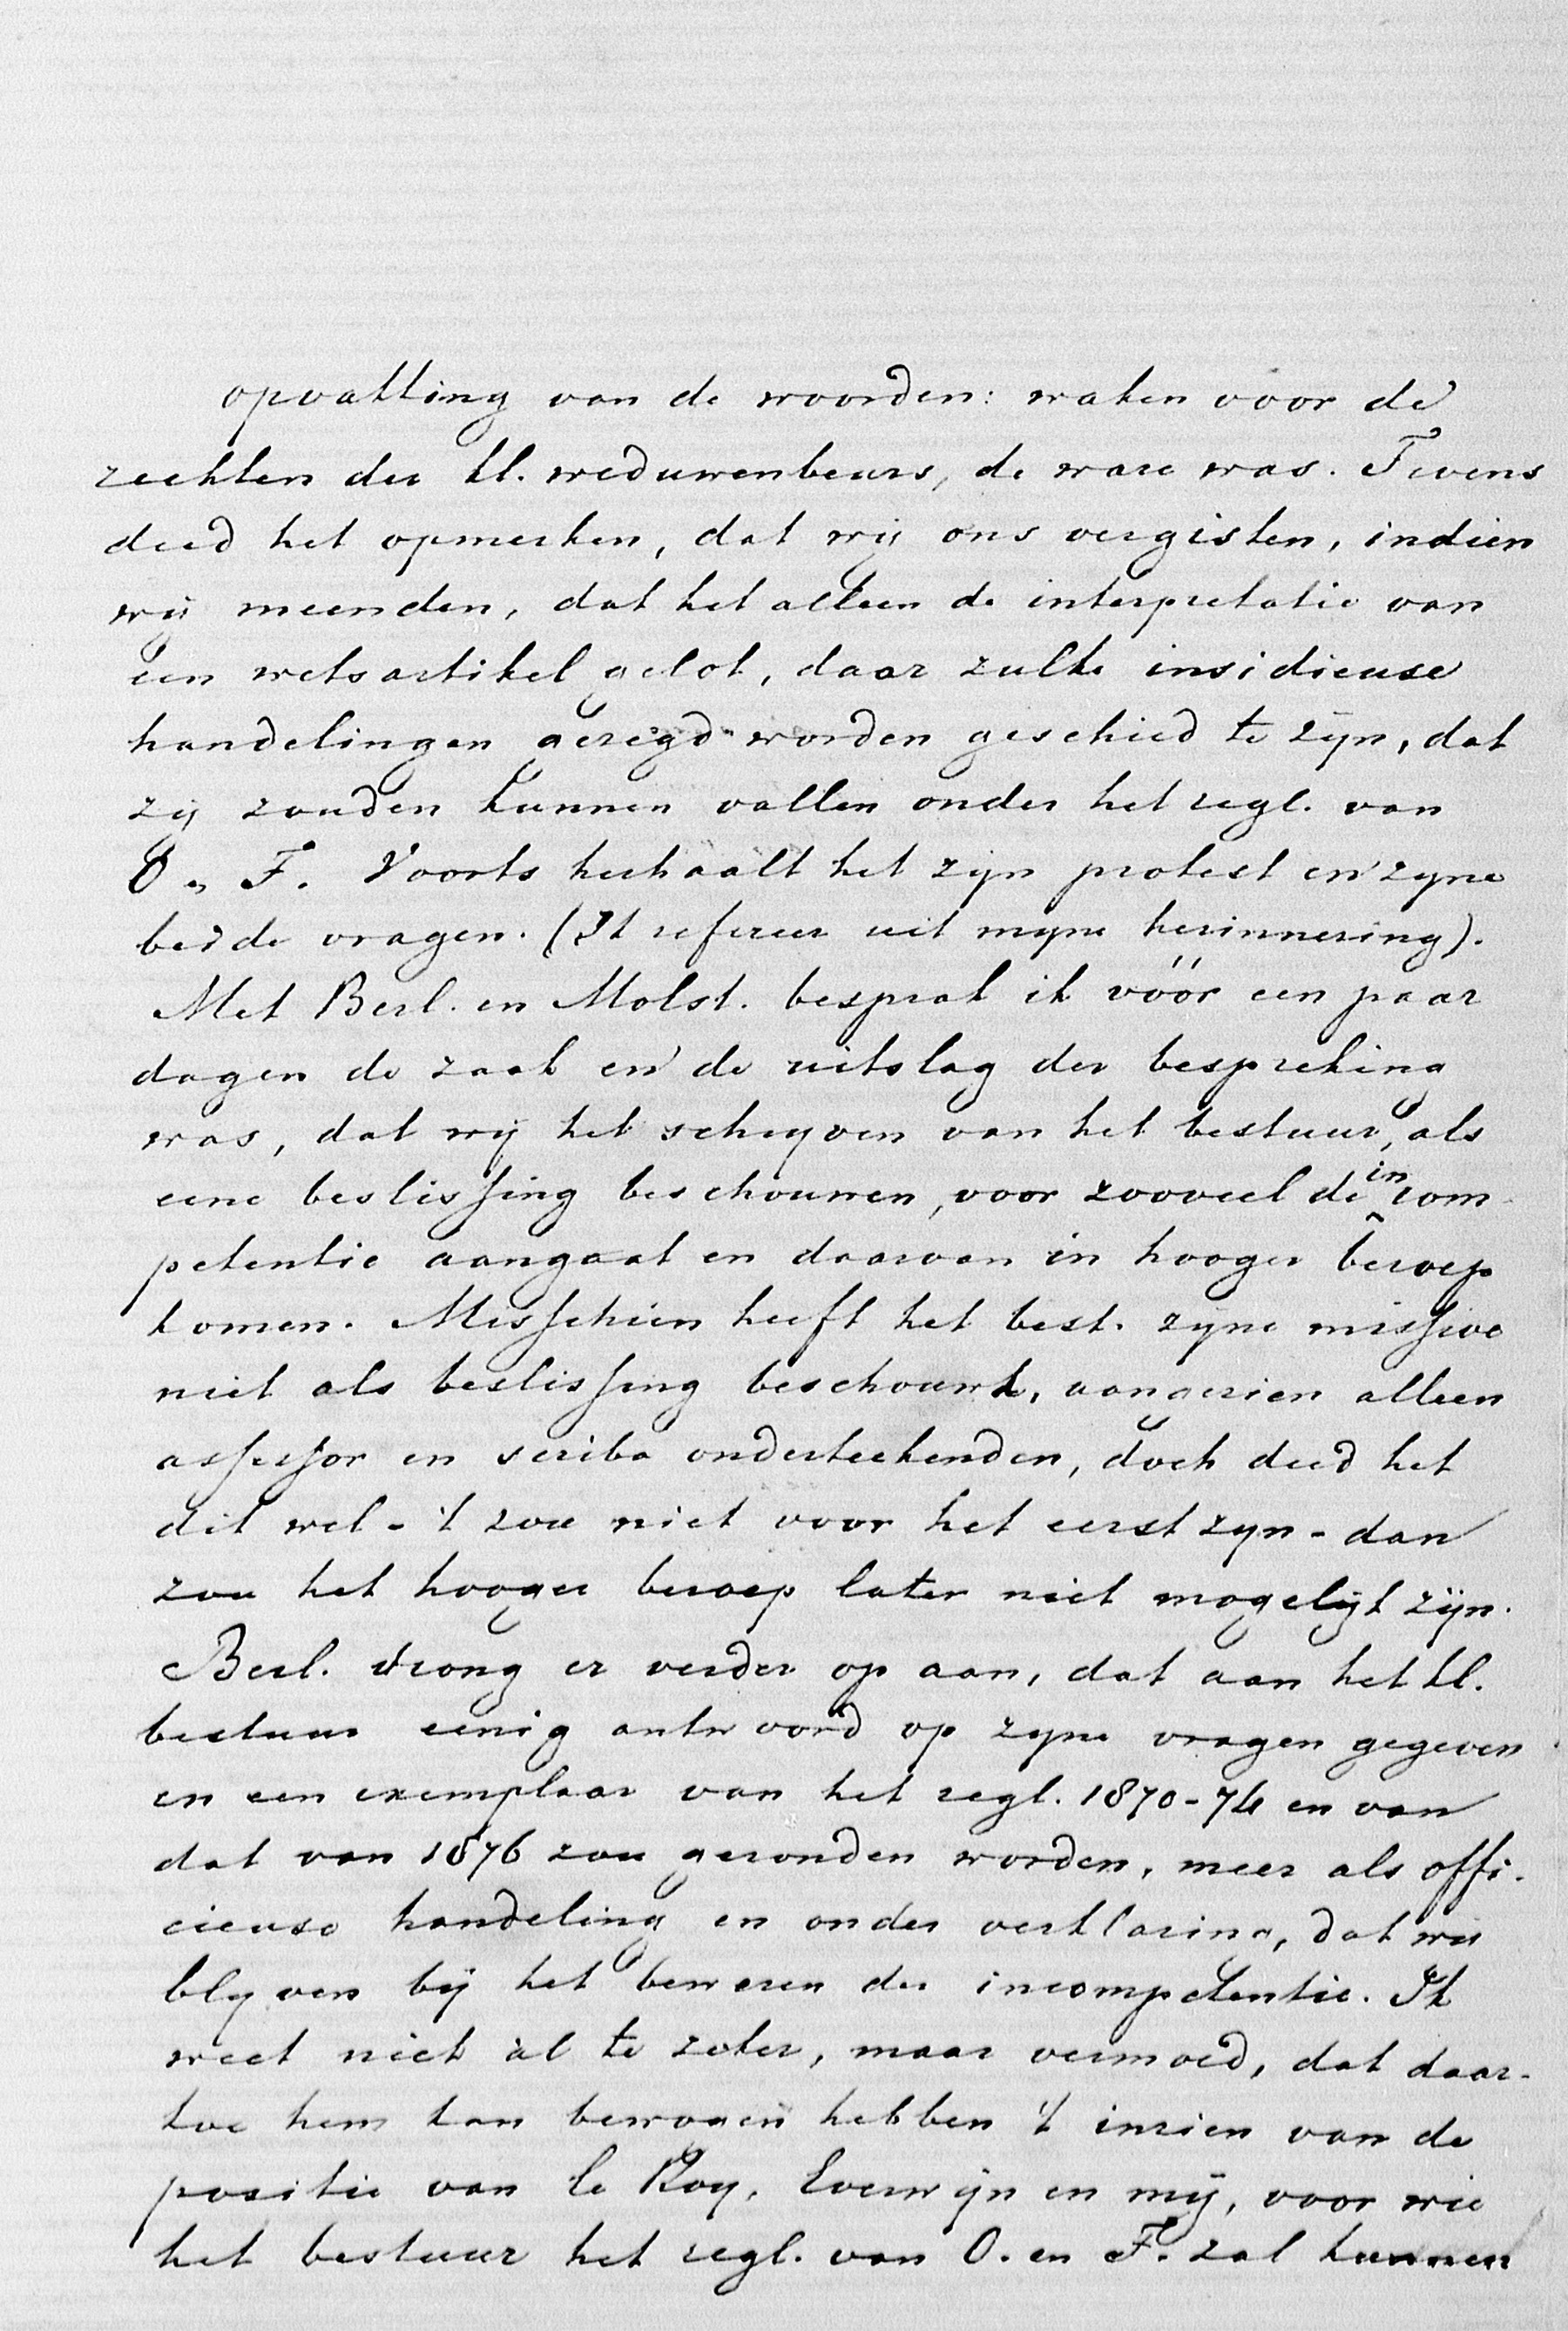 opvatting van de woorden: waken voor de
rechten der kl. weduwenbeurs, de ware was. Tevens
deed het opmerken, dat wij ons vergisten, indien
wij meenden, dat het alleen de interpretatie van
een wetsartikel gelot, daar zulke insidieuse
handelingen gezegd worden geschied te zijn, dat
zij zouden kunnen vallen onder het regl. van
O. „ F. Voorts herhaalt het zijn protest en zijne
beide vragen. (Ik refereer uit mijne herinnering).
Met Berl. en Molst. besprak ik vóór een paar
dagen de zaak en de uitslag der bespreking
was, dat wij het schrijven van het bestuur, als
eene beslissing beschouwen, voor zooveel de incom
petentie aangaat en daarvan in hooger beroep
komen. Misschien heeft het best. zijne missive
niet als beslissing beschouwd, aangezien alleen
assessor en scriba onderteekenden, doch deed het
dit wel - 't zou niet voor het eerst zijn - dan
zou het hooger beroep later niet mogelijk zijn.
Berl. drong er verder op aan, dat aan het kl.
bestuur eenig antwoord op zijne vragen gegeven
en een exemplaar van het regl. 1870-74 en van
dat van 1876 zou gezonden worden, meer als offi-
cieuse handeling en onder verklaring, dat wij
blijven bij het beweren der incompetentie. Ik
weet niet al te zeker, maar vermoed, dat daar-
toe hem kan bewogen hebben 't inzien van de
positie van le Roy, Everwijn en mij, voor wie
het bestuur het regl. van O. en F. zal kunnen